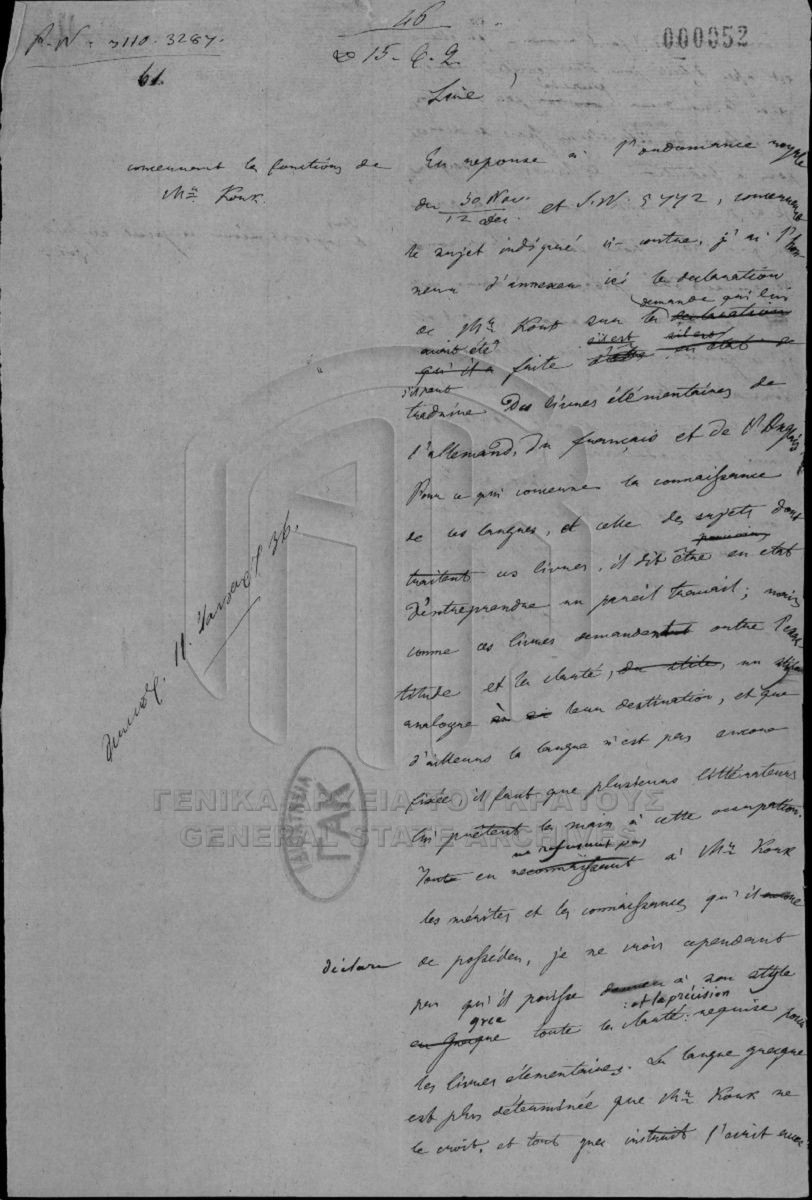 46
000052
P. N. 3110. 3287.
15 - 6 - 2
61.
Sire!
concernant les fonctions de
Mr Kork.
En reponse à l'ordonnance royale
du 30 Nov. / 12 Dec. et S. N. 5772, concernant
le sujet indiqué ci-contre, j'ai l'hon-
neur d'annexer ici la declaration
de Mr Kork sur la declaration
demande qui lui
avait été
qu'il a faite en état de
s'il peut
traduire des livres élémentaires de
l'allemand, du français et de l'Anglais.
Pour ce qui concerne la connaissance
de ces langues, et celle des sujets dont
traitent ces livres, il dit être en etat
d'entreprendre un pareil travail; mais
comme ces livres demandent outre l'exac-
titude et la clarté, du stile, un stile
analogue à leur destination, et que
d'ailleurs la langue n'est pas encore
fixée, il faut que plusieurs littérateurs
prêtent la main à cette occupation.
ne refusant pas
Toute en reconnaissant à Mr Kork
les mérites et les connaissances qu'il
déclare
de posséder, je ne crois cependant
pas qu'il puisse donner à son style
grec
: et la précision
en Grecque toute la clarté requise pour
les livres élementaires. La langue grecque
est plus déterminée que Mr Kork ne
le croit, et tout grec instruit l'écrit
11. 36.
ΓΕΝΙΚΑ ΑΡΧΕΙΑ ΤΟΥ ΚΡΑΤΟΥΣ
GENERAL STATE ARCHIVES
ΓΑΚ